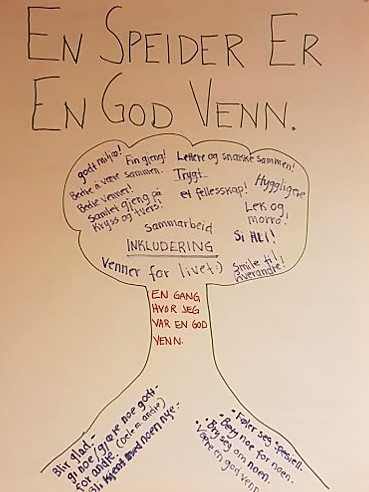 EN SPEIDER ER
EN GOD VENN.
godt miljø!
Fin gjeng!
Lettere og snakke sammen!
Bedre å være sammen.
Trygt
Bedre venner!
et fellesskap!
Hyggligere
Samlet gjeng på
kryss og tvers!
Lek og
morro!
sammarbeid
Si HEI!
INKLUDERING
Venner for livet:)
Smile til
hverandre!
EN GANG
HVOR JEG
VAR EN GOD
VENN.
Blir glad-
gi noe/gjøre noe godt-
for andre. (Dele m. andre)
Bli kjent med noen nye-
-Føler seg spesiell.
-Bety noe for noen.
-Bry seg om noen.
-Være en god venn.